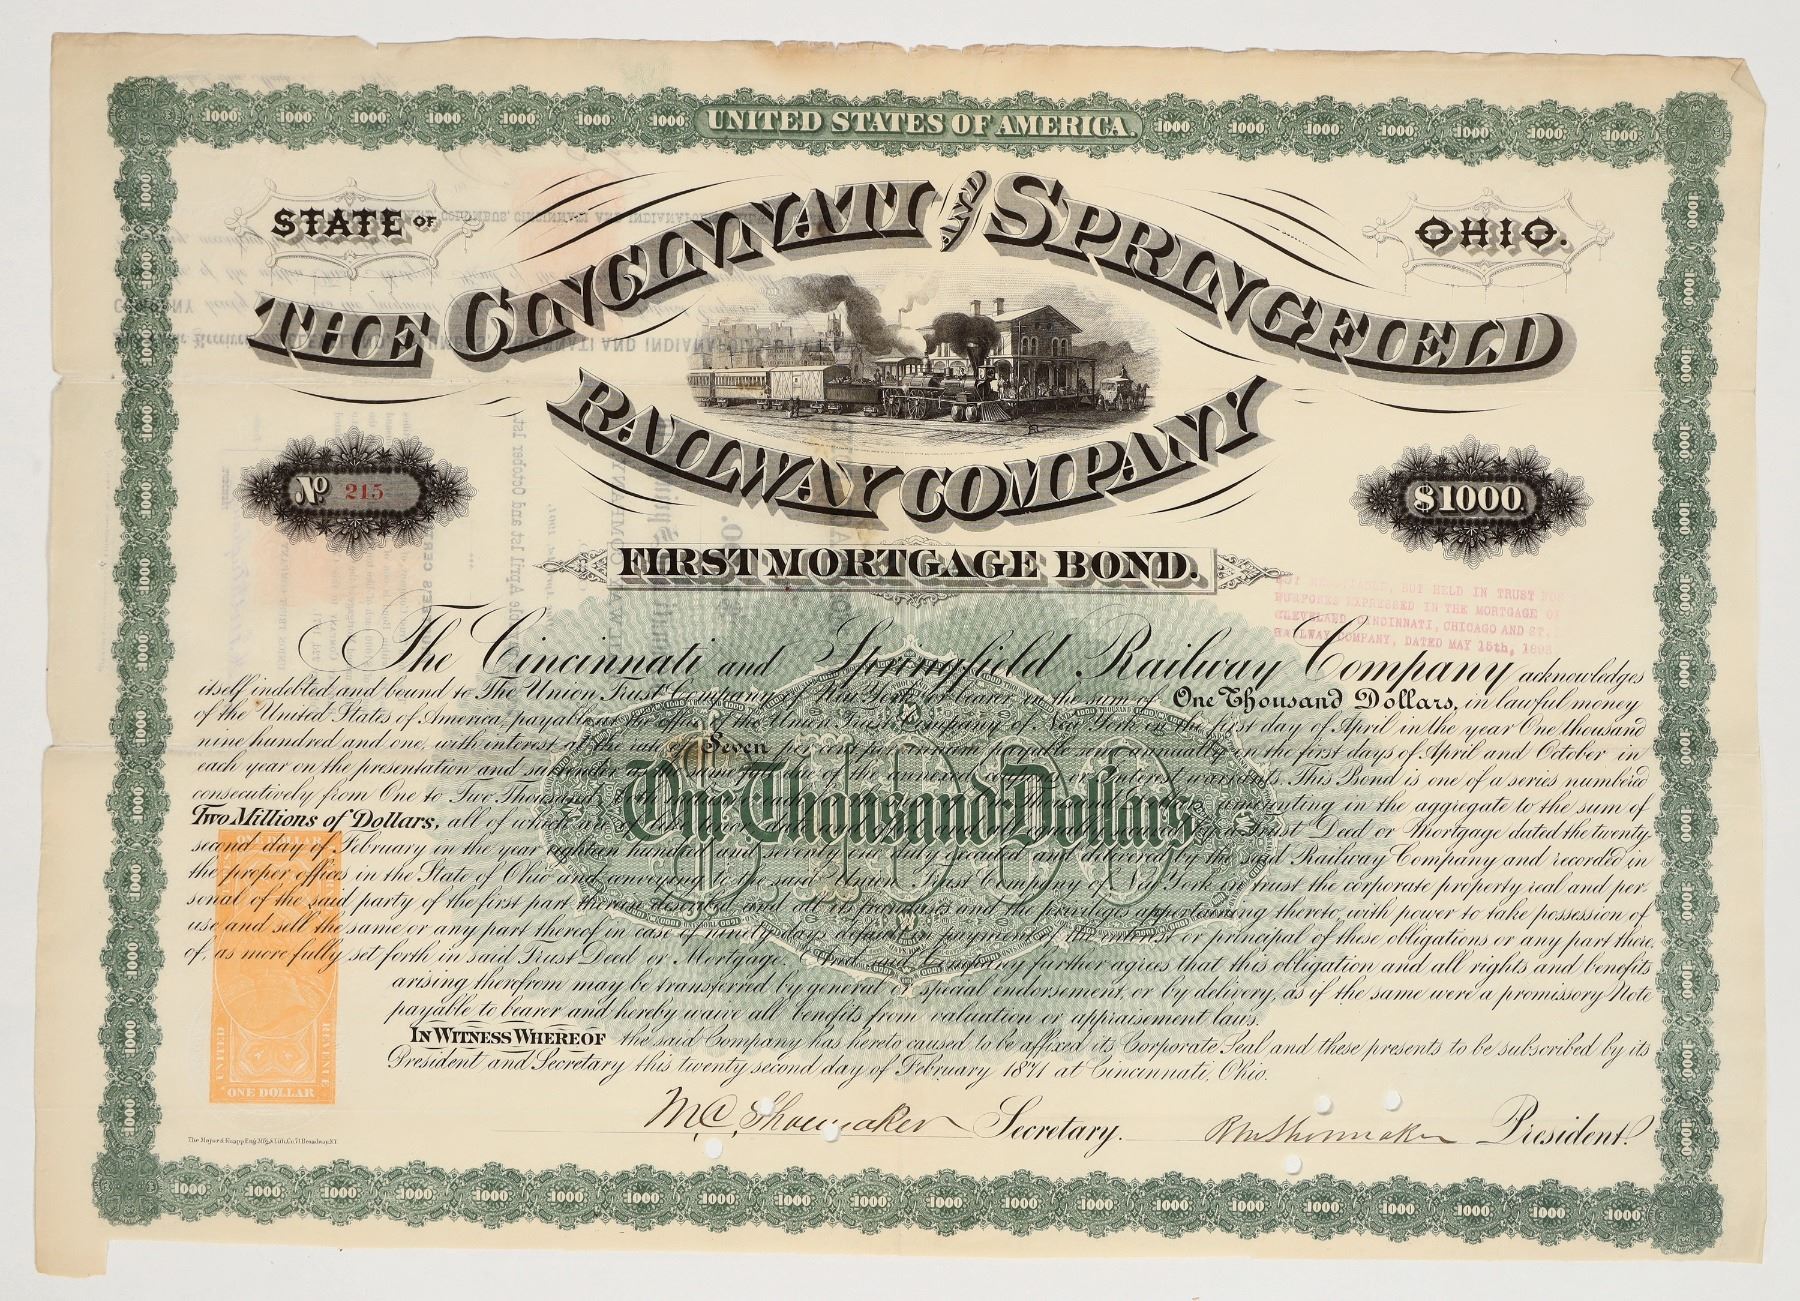 UNITED STATES OF AMERICA.
STATE OF
OHIO.
THE CINCINNATI AND SPRINGFIELD
RAILWAY COMPANY
No 215
$1000.
FIRST MORTGAGE BOND.
BUT HELD IN TRUST FOR
PURPOSES EXPRESSED IN THE MORTGAGE OF
CLEVELAND, CINCINNATI, CHICAGO AND ST.
RAILWAY COMPANY, DATED MAY 15th,
The Cincinnati and Springfield Railway Company acknowledges
itself indebted and bound to The Union Trust Company of New York or bearer in the sum of One Thousand Dollars, in lawful money
of the United States of America, payable at the office of the Union Trust Company of New York on the first day of April in the year One thousand
nine hundred and one, with interest at the rate of Seven per cent per annum payable semi annually on the first days of April and October in
each year on the presentation and surrender as the same fall due of the annexed coupons or interest warrants. This Bond is one of a series numbered
consecutively from One to Two Thousand, both amounting in the aggregate to the sum of
Two Millions of Dollars, all of which are of Trust Deed or Mortgage dated the twenty-
second day of February in the year eighteen hundred and seventy one duly executed and delivered by the said Railway Company and recorded in
the proper offices in the State of Ohio and conveying to the said Union Trust Company of New York in trust the corporate property real and per-
sonal of the said party of the first part therein described and all its franchises and the privileges appertaining thereto, with power to take possession of
use and sell the same or any part thereof in case of ninety days default in payment of the interest or principal of these obligations or any part there-
of, as more fully set forth in said Trust Deed or Mortgage. And said Company further agrees that this obligation and all rights and benefits
arising therefrom may be transferred by general or special endorsement, or by delivery, as if the same were a promissory Note
payable to bearer and hereby waive all benefits from valuation or appraisement laws.
IN WITNESS WHEREOF the said Company has hereto caused to be affixed its Corporate Seal and these presents to be subscribed by its
President and Secretary this twenty second day of February 1871 at Cincinnati, Ohio.
One Thousand Dollars
ONE DOLLAR
UNITED
REVENUE
ONE DOLLAR
M.C. Shoemaker Secretary.
R M Shoemaker President.
The Major & Knapp Eng. Mfg & Lith. Co. 71 Broadway N.Y.